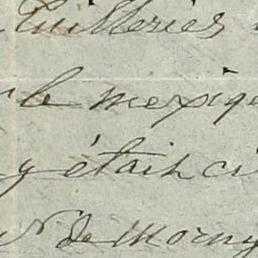 Tuilleries
le mexiqe
y était ci
de Morny